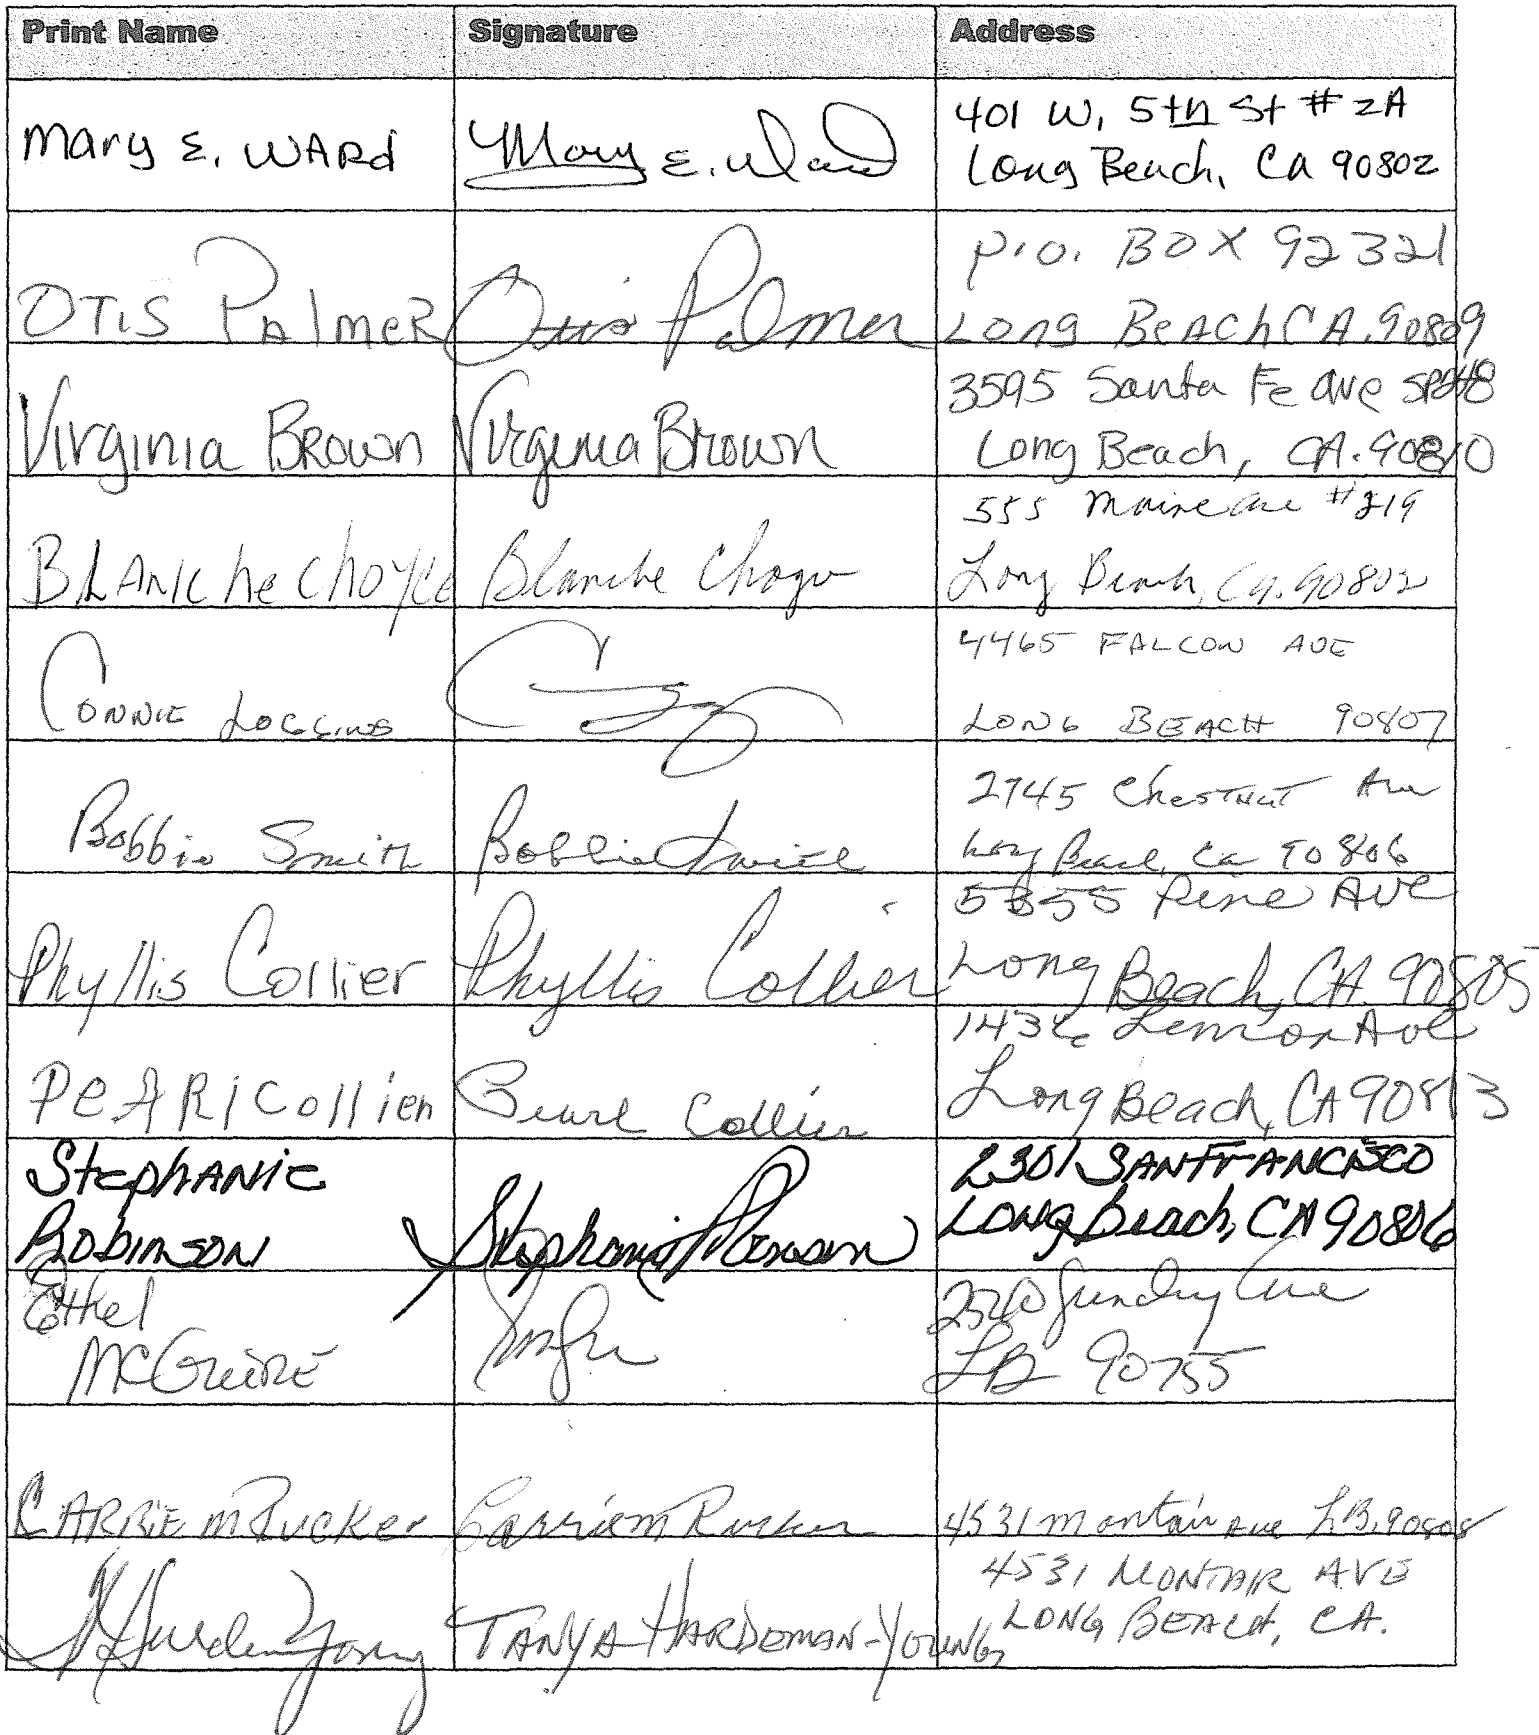 Print Name Signature Address
Mary E. WARd Mary E. Ward 401 W, 5th St # 2A
Long Beach, Ca 90802
OTIS PAlmeR Otis Palmer P.O. BOX 92321
Long BeAch CA. 90809
Virginia BROWN Virginia Brown 3595 Santa Fe Ave
Long Beach, CA. 90810
BLANKhe Choyce Blanche Choyce 555 Maine Ave #219
Long Beach, Ca. 90802
CONNIE LOGGINS 4465 FALCON AVE
LONG BEACH 90807
Bobbie Smith Bobbie Smith 2745 Chestnut Ave
Long Beach, Ca 90806
Phyllis Collier Phyllis Collier 5355 Pine Ave
Long Beach, CA. 90805
PeARl Collier Pearl Collier 1436 Lemon Ave
Long Beach, CA 90813
StephANie 2301 SANFRANCISCO
RobinsON Stephanie Robinson Long Beach, CA 90806
Ethel Gundry Ave
McGuiRE LB 90755
CARRIE M Rucker Carrie M Rucker 4531 Montair Ave L.B. 90808
TANYA HARDEMAN-YOUNG 4531 MONTAIR AVE
LONG BEACH, CA.